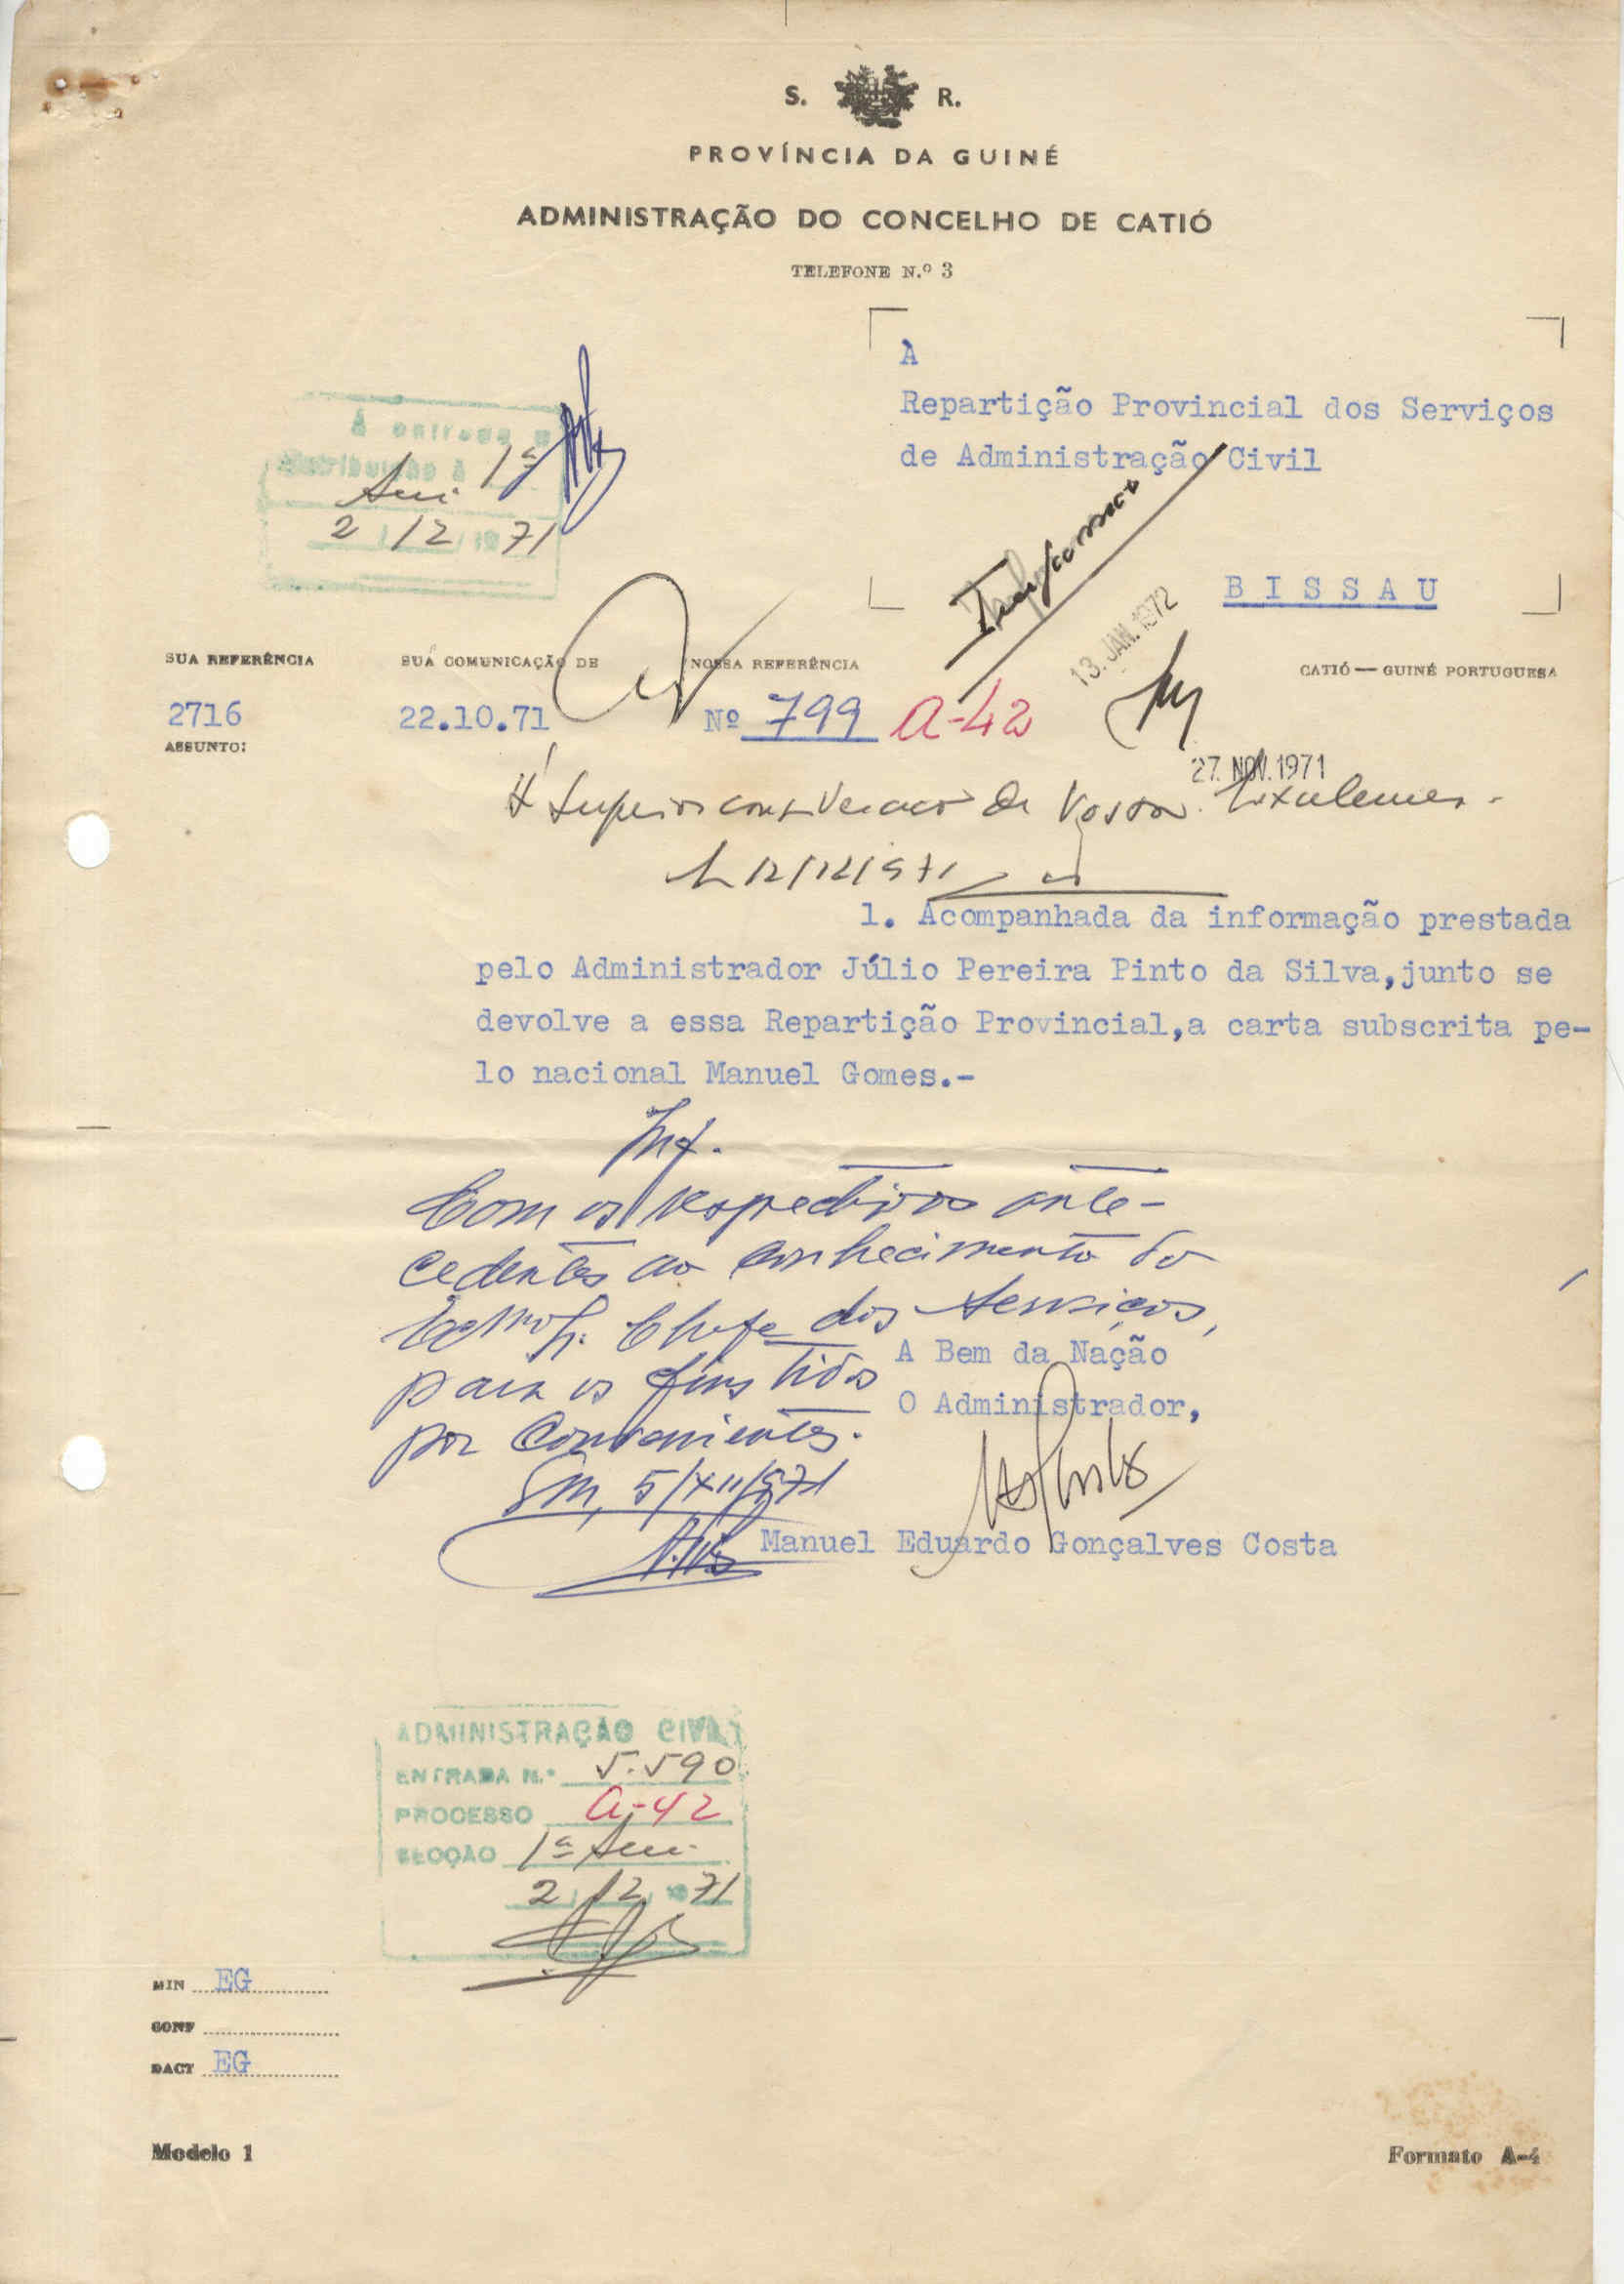 S. R.
PROVÍNCIA DA GUINÉ
ADMINISTRAÇÃO DO CONCELHO DE CATIÓ
TELEFONE N.º 3
À
Repartição Provincial dos Serviços
de Administração Civil
B I S S A U
À entrada e
distribuição à 1ª
2 12 71
13. JAN. 1972
SUA REFERÊNCIA SUA COMUNICAÇÃO DE NOSSA REFERÊNCIA CATIÓ — GUINÉ PORTUGUESA
2716 22.10.71 Nº 799 A-42
ASSUNTO:
27. NOV. 1971
À Superior consideração de Vossa Excelência.
12/12/971
1. Acompanhada da informação prestada
pelo Administrador Júlio Pereira Pinto da Silva,junto se
devolve a essa Repartição Provincial,a carta subscrita pe-
lo nacional Manuel Gomes.-
Inf.
Com os respectivos ante-
cedentes ao conhecimento do
Exmo Sr. Chefe dos Serviços,
para os fins tidos
por convenientes.
Em, 5/XII/971
A Bem da Nação
O Administrador,
Manuel Eduardo Gonçalves Costa
ADMINISTRAÇÃO CIVIL
ENTRADA N.º 5.590
PROCESSO A-42
SECÇÃO 1ª
2 12 71
MIN EG
CONF
DACT EG
Modelo 1 Formato A-4